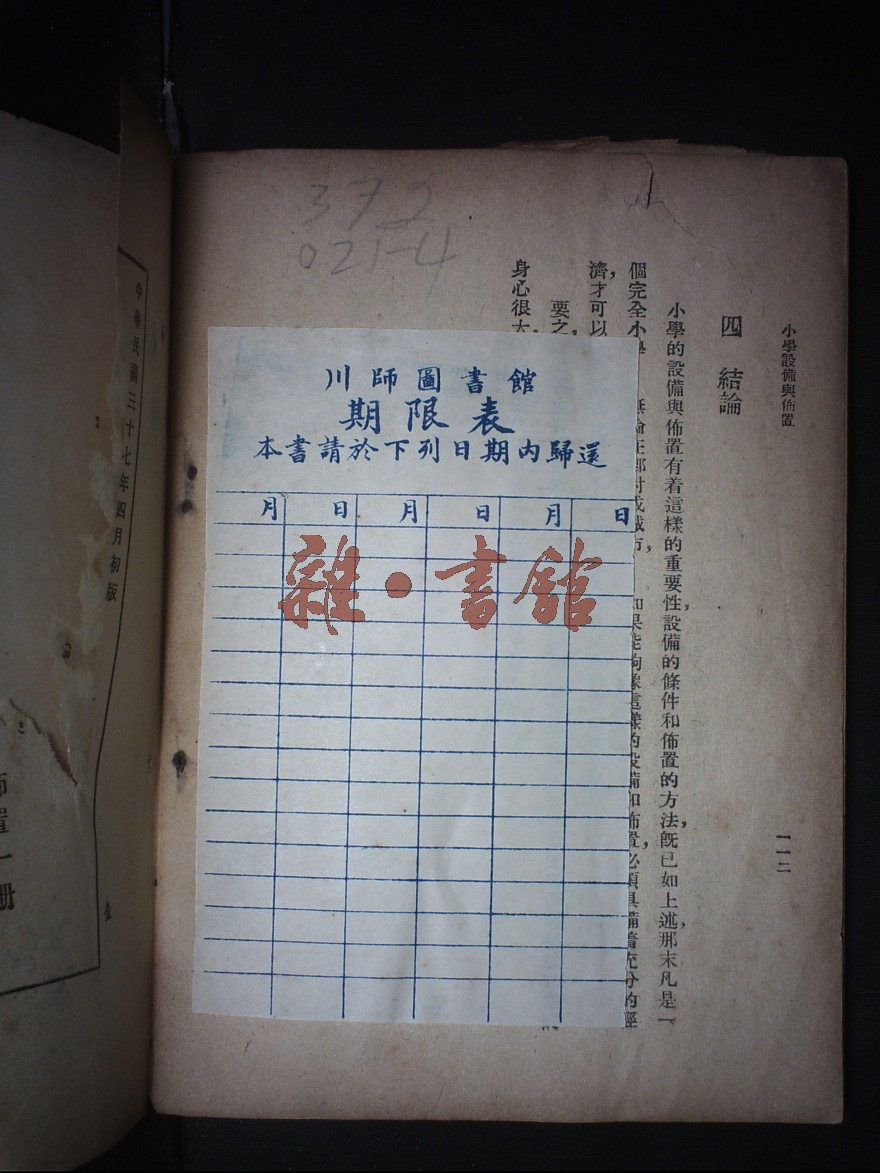 372
021-4
小學設備與佈置
一一二
四 結論
小學的設備與佈置有着這樣的重要性，設備的條件和佈置的方法，既已如上述，那末凡是一
個完全小學
無論在鄉村或城市，
如果能夠像這樣的設備和佈置，必須具備着充分的經
濟，才可以
要之，
身心很大，
川師圖書館
期限表
本書請於下列日期內歸還
月 日 月 日 月 日
雜·書館
中華民國三十七年四月初版
佈置一冊